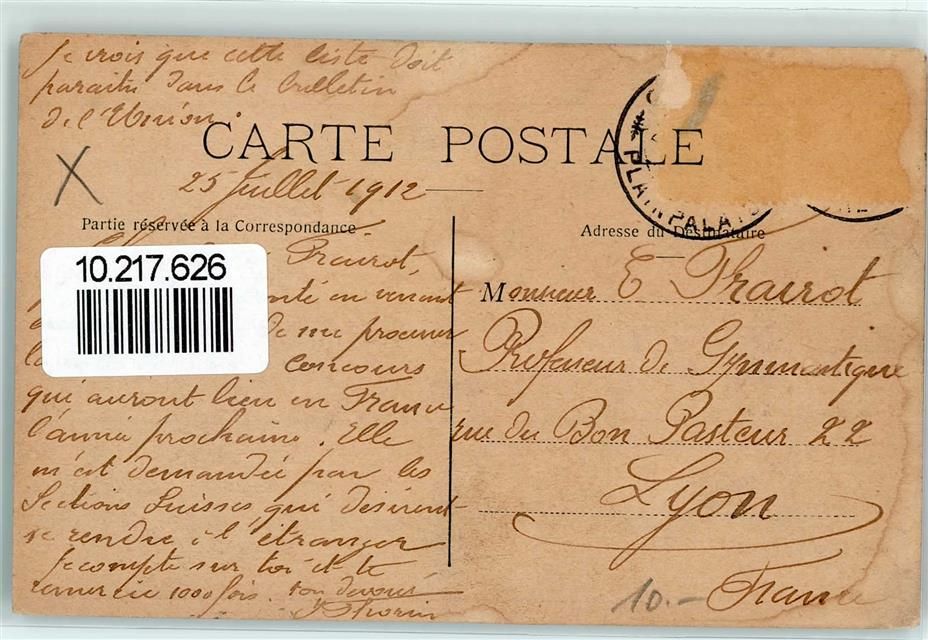 Je crois que cette liste doit
paraitre dans le bulletin
de l'Union.
CARTE POSTALE
25 Juillet 1912
PLAINPALAIS
Partie réservée à la Correspondance
Adresse du Destinataire
10.217.626
Frairot,
en venant
de me procurer
concours
qui auront lieu en France
l'année prochaine. Elle
m'est demandée par les
Sections Suisses qui désirent
se rendre à l'étranger
Je compte sur toi et te
remercie 1000 fois. ton dévoué
Monsieur E Frairot
Professeur de Gymnastique
rue du Bon Pasteur 22
Lyon
France
10.-